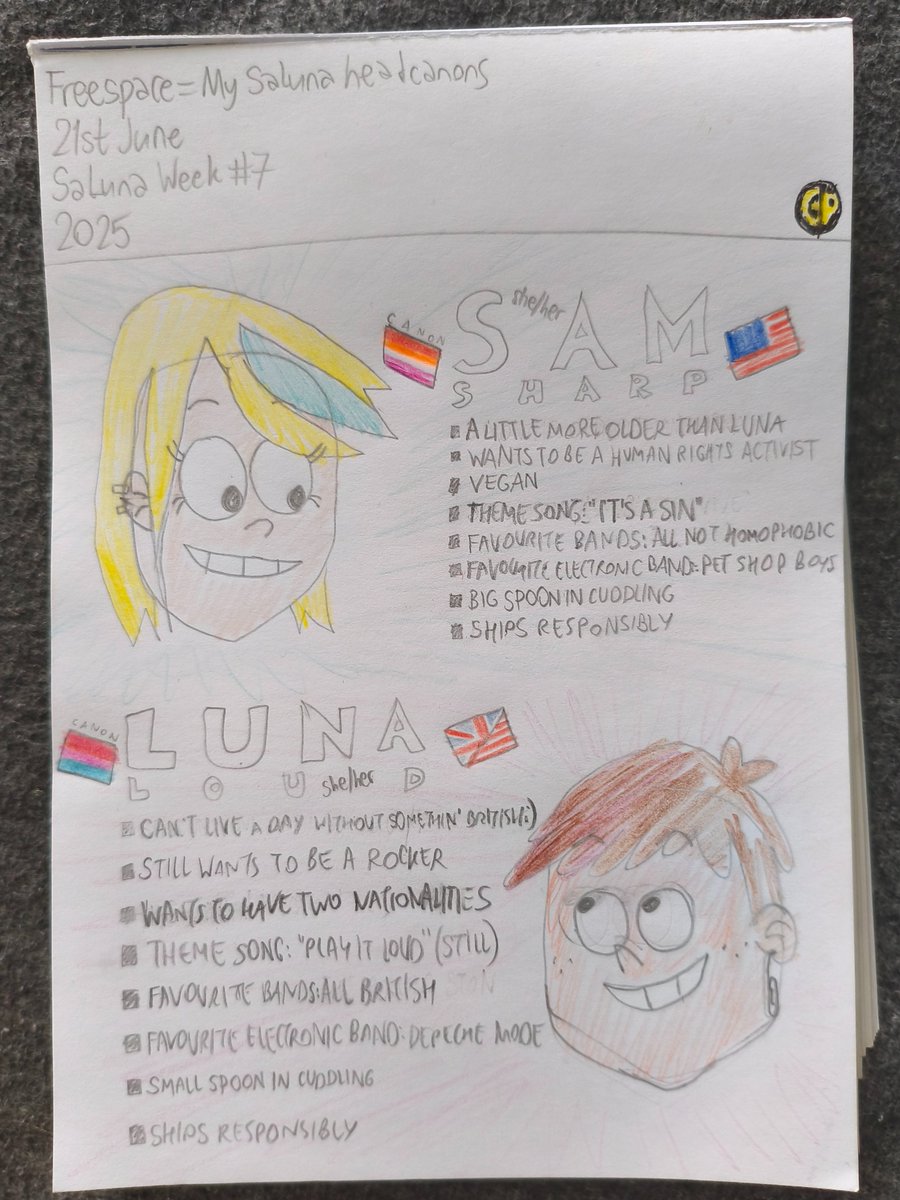 Freespace = My Saluna headcanons
21st June
Saluna Week #7
2025
CP
CANON
SAM
she/her
SHARP
A LITTLE MORE OLDER THAN LUNA
WANTS TO BE A HUMAN RIGHTS ACTIVIST
VEGAN
THEME SONG: "IT'S A SIN"
FAVOURITE BANDS: ALL NOT HOMOPHOBIC
FAVOURITE ELECTRONIC BAND: PET SHOP BOYS
BIG SPOON IN CUDDLING
SHIPS RESPONSIBLY
CANON
LUNA
LOUD
she/her
CAN'T LIVE A DAY WITHOUT SOMETHIN' BRITISH :)
STILL WANTS TO BE A ROCKER
WANTS TO HAVE TWO NATIONALITIES
THEME SONG: "PLAY IT LOUD" (STILL)
FAVOURITE BANDS: ALL BRITISH
FAVOURITE ELECTRONIC BAND: DEPECHE MODE
SMALL SPOON IN CUDDLING
SHIPS RESPONSIBLY